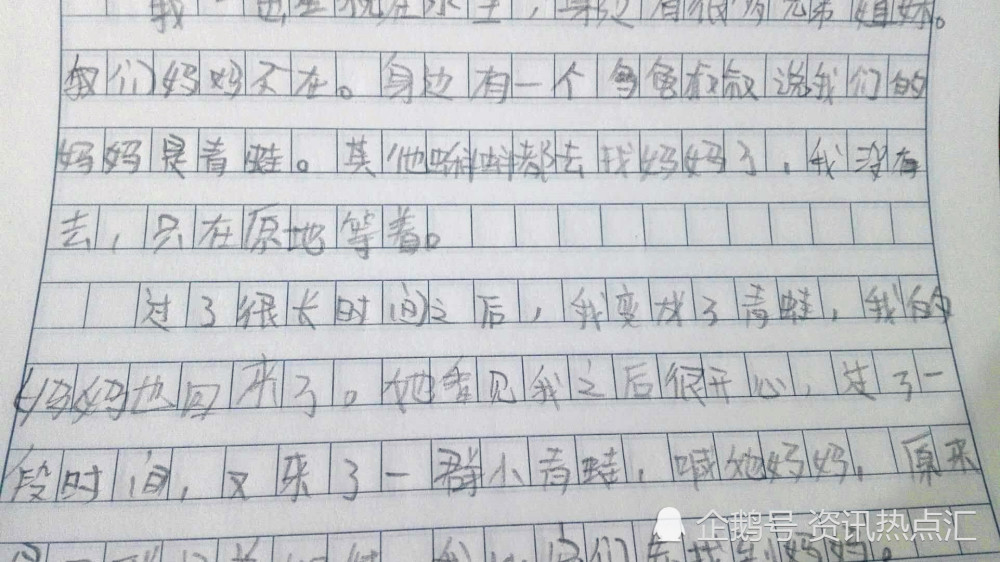 我一出生就在水里，身边有很多兄弟姐妹。
我们妈妈不在。身边有一个鱼叔叔说我们的
妈妈是青蛙。其他蝌蚪都去找妈妈了，我没有
去，只在原地等着。
过了很长时间之后，我变成了青蛙，我的
妈妈也回来了。她看见我之后很开心，过了一
段时间，又来了一群小青蛙，喊她妈妈，原来
妈妈。
企鹅号 资讯热点汇